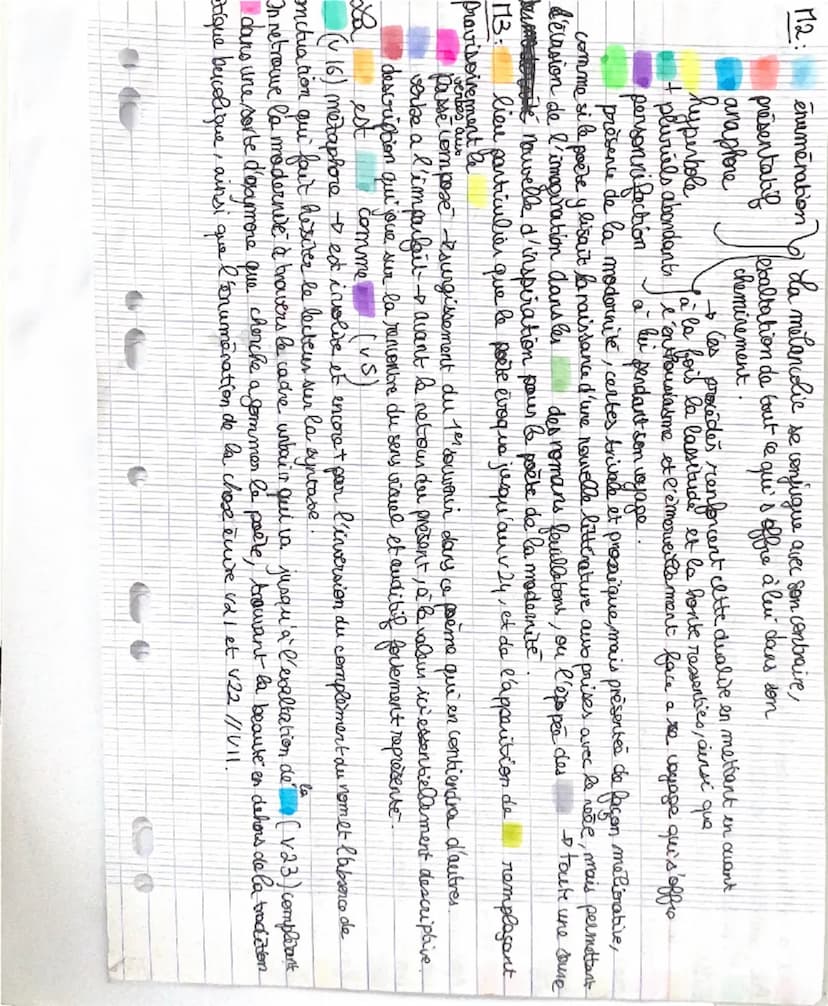 M2:
énumération La mélancolie se conjugue avec son contraire,
présentatif l'exaltation de tout ce qui s'offre à lui dans son
anaphore cheminement.
→ Ces procédés renforcent cette dualité en mettant en avant
hyperbole à la fois la lassitude et la honte ressenties, ainsi que
+ pluriels abondants l'enthousiasme et l'émerveillement face a ce voyage qui s'offre
personnifaction à lui pendant son voyage.
présence de la modernité, certes triviale et prosaïque, mais présentée de façon méliorative,
comme si le poète y lisait la naissance d'une nouvelle littérature aux prises avec le réel, mais permettant
l'évasion de l'imagination dans les des romans feuilletons, ou l'épopée des → toute une
nouvelle d'inspiration pour le poète de la modernité.
M3: lieu particulier que le poète évoque jusqu'au v24, et de l'apparition de remplaçant
provisoirement le
verbes au
passé composé → surgissement du 1er souvenir dans ce poème qui en contiendra d'autres
verbe a l'imparfait → avant le retour du présent, à la valeur ici essentiellement descriptive.
description qui joue sur la rencontre du sens visuel et auditif fortement représenté.
La est comme (v5)
(v16) métaphore → est insolite et encore + par l'inversion du complément du nom et l'absence de
ponctuation qui fait hésiter le lecteur sur la syntaxe.
On retrouve la modernité à travers le cadre urbain qui va jusqu'à l'exaltation de la (v23) complétant
dans une sorte d'oxymore que cherche a gommer le poète, trouvant la beauté en dehors de la tradition
bucolique, ainsi que l'énumération de la chose entre v21 et v22 // v11.